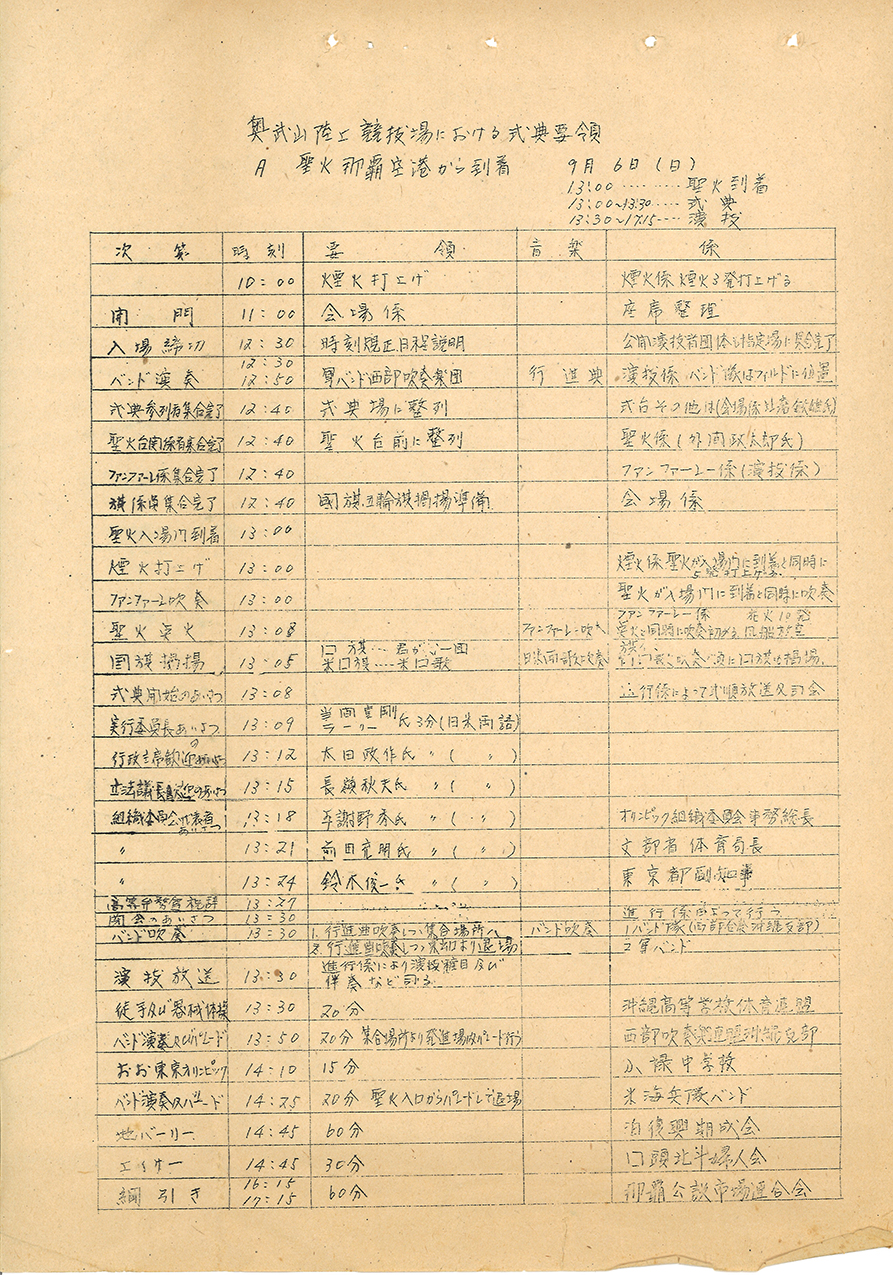 奥武山陸上競技場における式典要領
A 聖火那覇空港から到着 9月6日(日)
13:00 ‥‥‥‥ 聖火到着
13:00~13:30 ‥‥ 式典
13:30~17:15 ‥‥ 演技
次第 時刻 要領 音楽 係
10:00 煙火打上げ 煙火係 煙火3発打上げる
開門 11:00 会場係 座席整理
入場締切 12:30 時刻規正日程説明 公開演技者団体は指定場に集合完了
バンド演奏 12:30 12:50 軍バンド西部吹奏楽団 行進典 演技係 バンド隊はフィルドに位置
式典参列者集合完了 12:40 式典場に整列 式台その他は(会場係
聖火台関係者集合完了 12:40 聖火台前に整列 聖火係(外間政太郎氏)
ファンファーレ係集合完了 12:40 ファンファーレー係(演技係)
旗係員集合完了 12:40 國旗五輪旗掲揚準備 会場係
聖火入場門到着 13:00
煙火打上げ 13:00 煙火係 聖火が入場門に到着と同時に
ファンファーレ吹奏 13:00 聖火が入場門に到着と同時に吹奏
聖火点火 13:08 ファンファーレー吹 ファンファーレー係 花火10発
国旗掲揚 13:05 口旗‥‥君が 一団
米口旗‥‥米口歌 日米両歌吹奏
式典開始のあいさつ 13:08 進行係によって 順放送及司会
実行委員長あいさつ 13:09 当間重剛 氏 3分(日米両語)
行政主席歓迎のあいさつ 13:12 太田政作氏 〃( 〃 )
立法議長歓迎のあいさつ 13:15 長嶺秋夫氏 〃( 〃 )
組織委員会代表者あいさつ 13:18 与謝野秀氏 〃( 〃 ) オリンピック組織委員会事務総長
〃 13:21 前田充明氏 〃( 〃 ) 文部省体育局長
〃 13:24 鈴木俊一氏 〃( 〃 ) 東京都副知事
高等弁務官祝辞 13:27
閉会のあいさつ 13:30 進行係によって行う
バンド吹奏 13:30 1.行進曲吹奏しつつ集合場所へ バンド吹奏 1バンド隊(西部 沖縄支部)
2.行進曲吹奏しつつ より退場 2軍バンド
演技放送 13:30 進行係により演技種目及び
伴奏など司る
徒手及び器械体操 13:30 20分 沖縄高等学校体育連盟
バンド演奏及びパレード 13:50 20分 集合場所より発進場内パレード行う 西部吹奏楽連盟沖縄支部
おお東京オリンピック 14:10 15分 小禄中学校
バンド演奏及パレード 14:25 20分 聖火入口からパレードして退場 米海兵隊バンド
ハーリー 14:45 60分 泊復興期成会
エイサー 14:45 30分 口頭北斗婦人会
綱引き 16:15 17:15 60分 那覇公設市場連合会